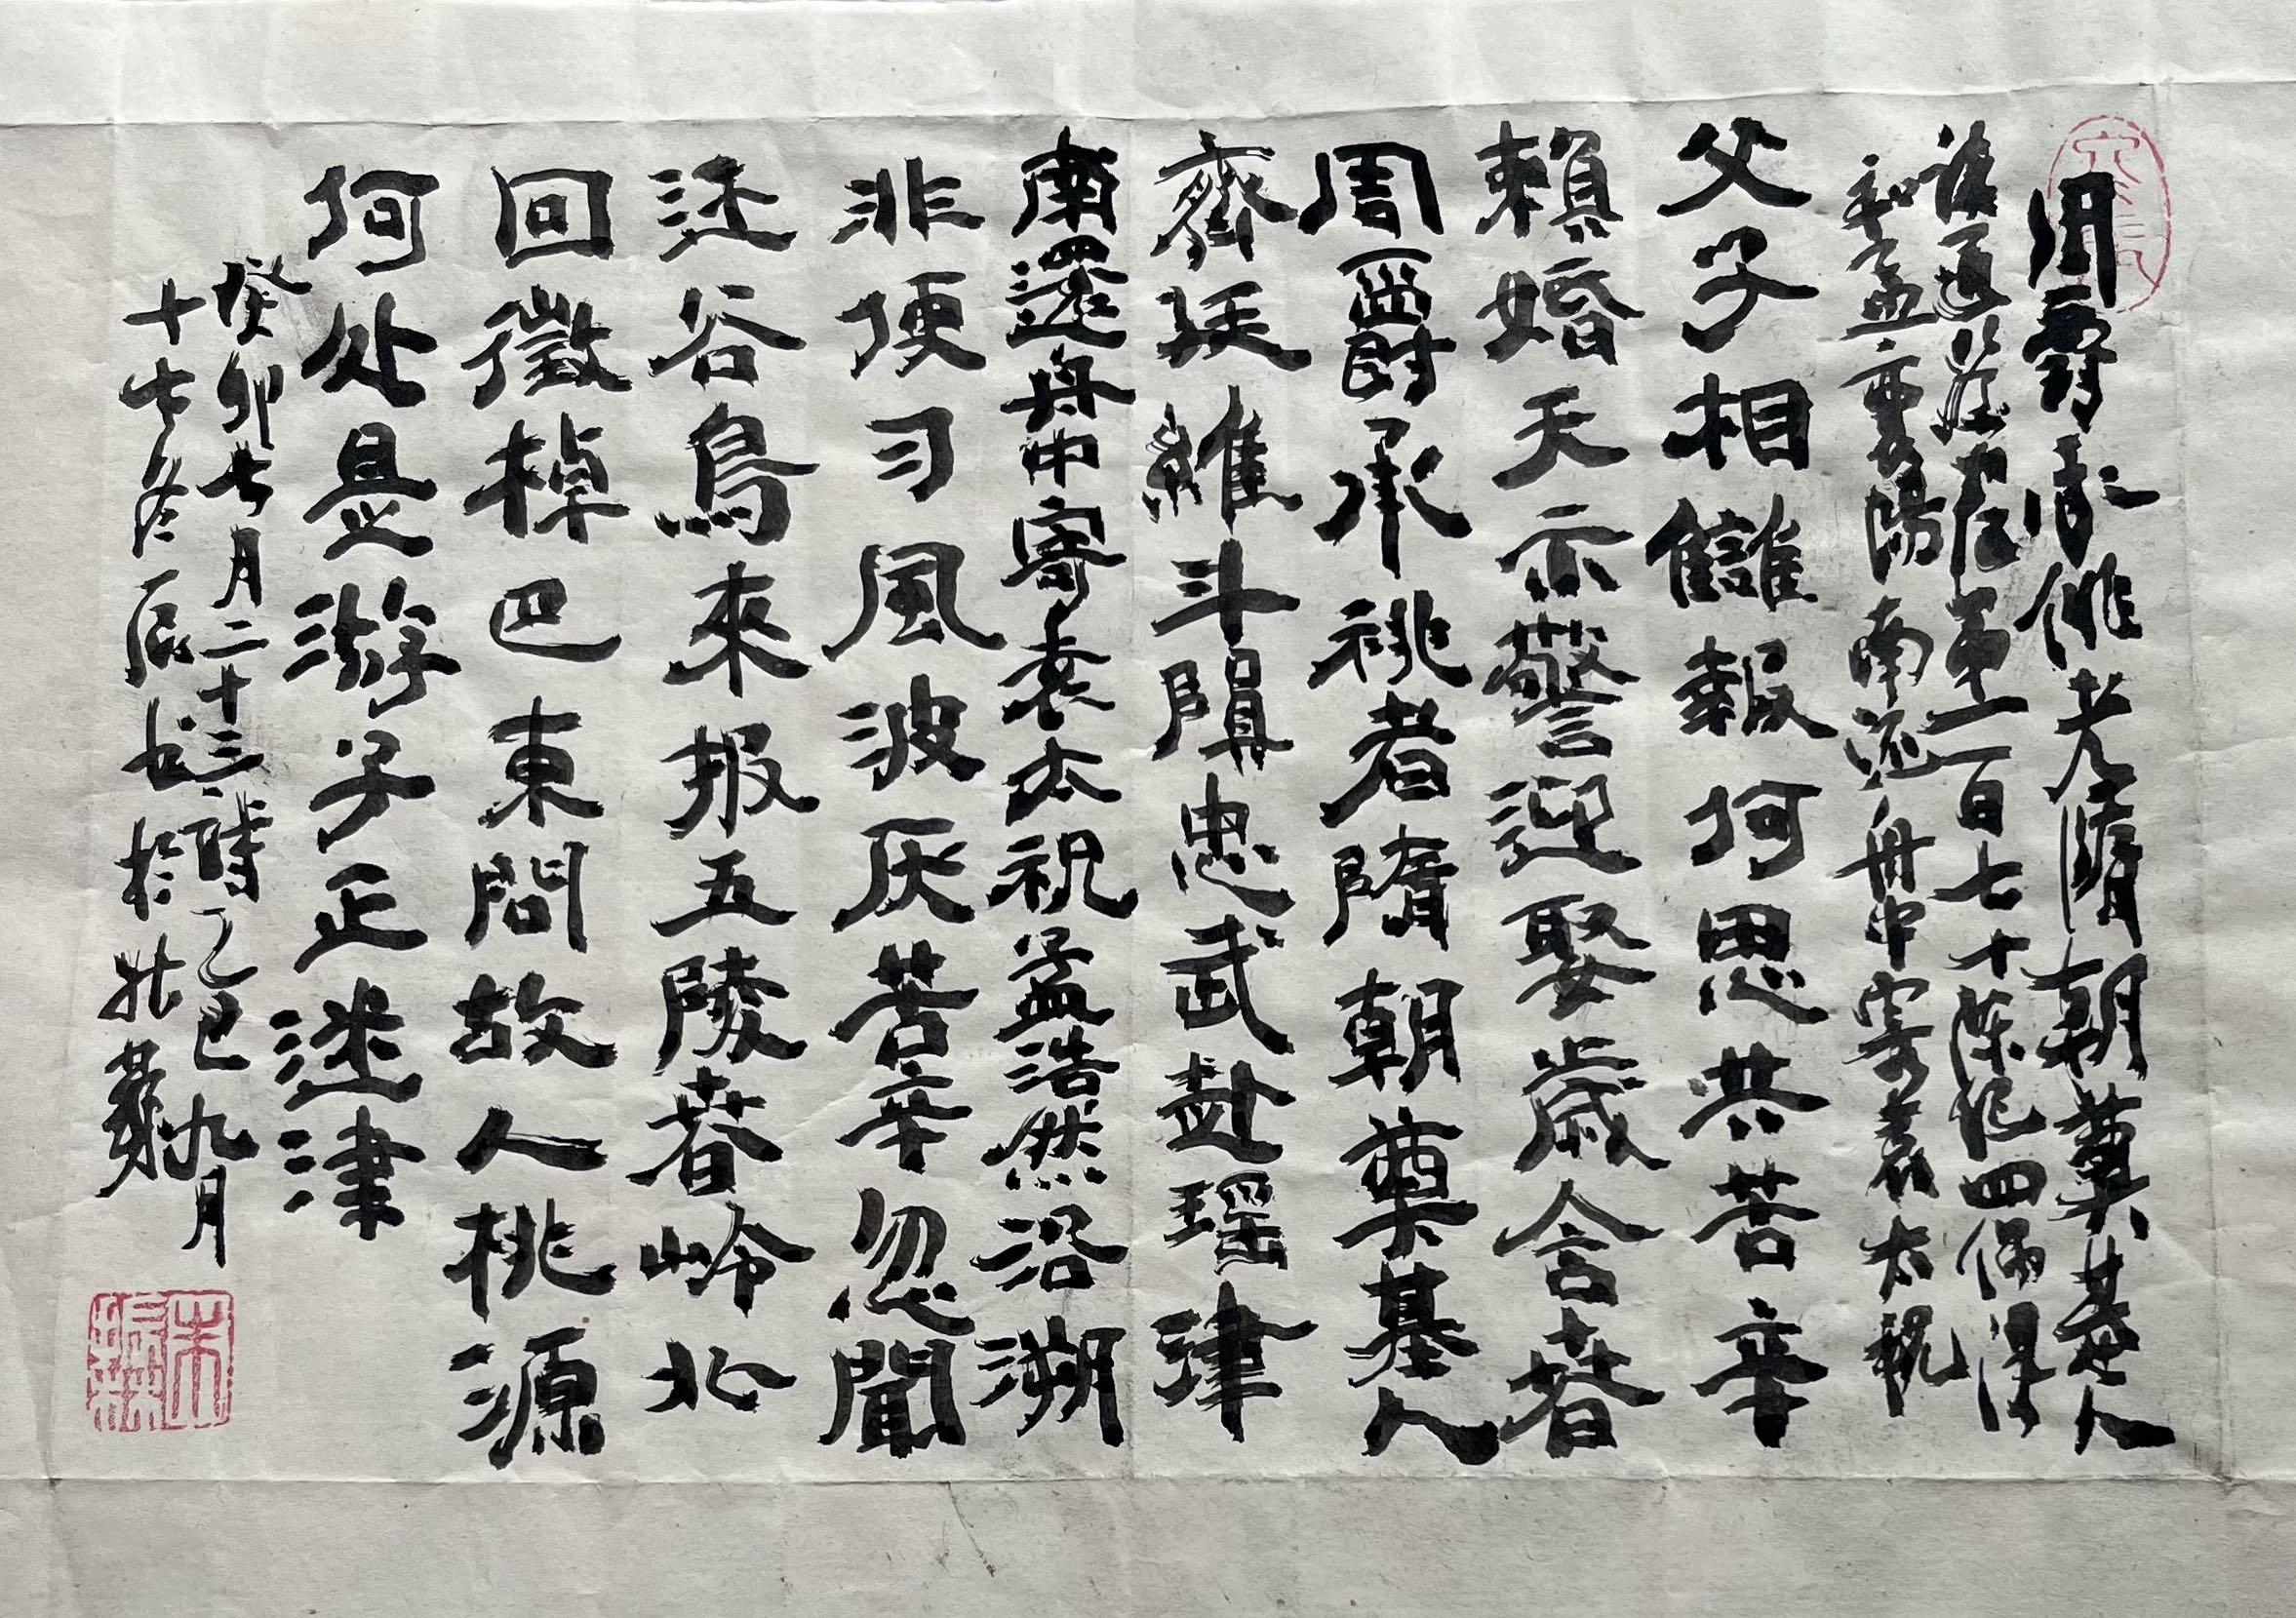 周爵承祧者隋朝奠墓人
讀通鑑卷第一百七十陳紀四偶得
和孟襄陽南還舟中寄袁太祝
父子相讎報何思共苦辛
賴婚天示警迎娶歲含春
周爵承祧者隋朝奠墓人
齊廷維斗隕忠武赴瑶津
南還舟中寄袁太祝孟浩然沿溯
非便习風波厌苦辛忽聞
迁谷鳥來报五陵春岭北
回徵棹巴東問故人桃源
何处是游子正迷津
癸卯七月二十三時乙巳九月
十七 辰書於